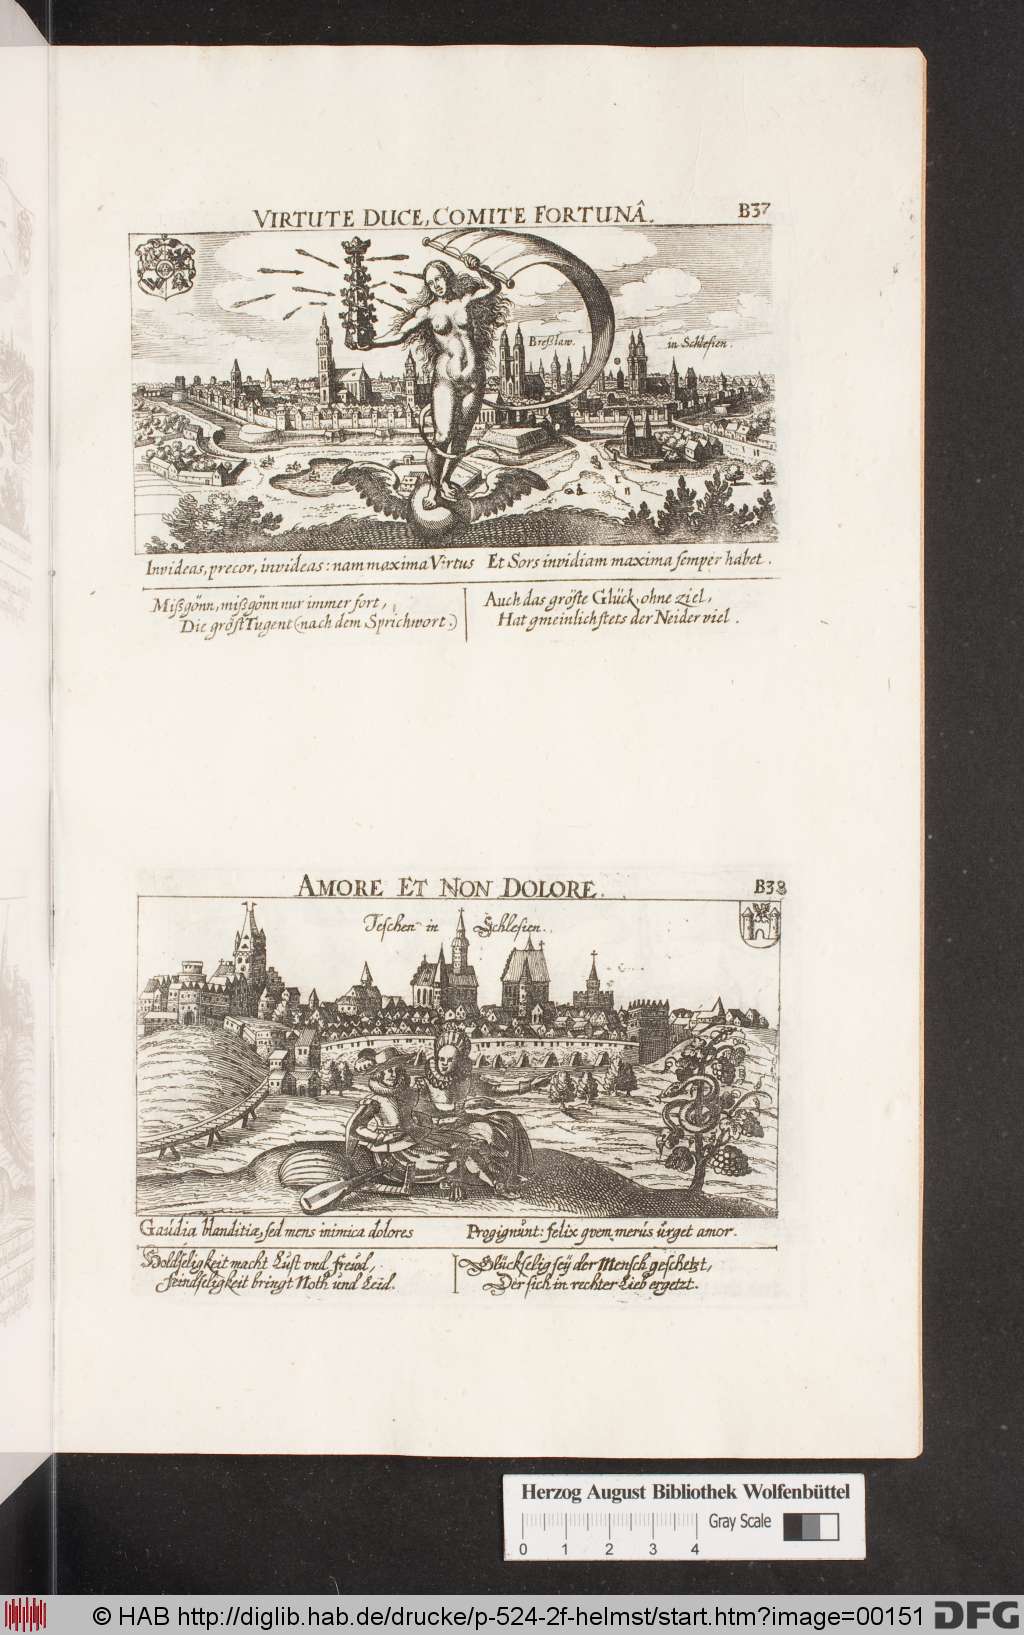 VIRTUTE DUCE, COMITE FORTUNÂ.
B37
Breßlaw. in Schlesien.
Invideas, precor, invideas: nam maxima Virtus Et Sors invidiam maxima semper habet.
Mißgönn, mißgönn nur immer fort,
Die gröst Tugent (nach dem Sprichwort,)
Auch das gröste Glück, ohne ziel,
Hat gmeinlich stets der Neider viel.
AMORE ET NON DOLORE.
B38
Teschen in Schlesien.
Gaudia blanditiæ, sed mens inimica dolores Progignunt: felix qvem merus urget amor.
Holdseligkeit macht Lust vnd freud,
Feindseligkeit bringt Noth und Leid.
Glückselig sey der Mensch geschetzt,
Der sich in rechter Lieb ergetzt.
Herzog August Bibliothek Wolfenbüttel
Gray Scale
0 1 2 3 4
© HAB http://diglib.hab.de/drucke/p-524-2f-helmst/start.htm?image=00151
DFG